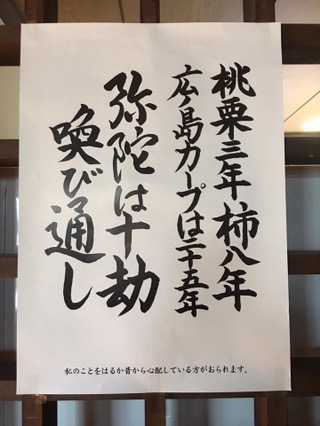 桃栗三年柿八年
広島カープは二十五年
弥陀は十劫
喚び通し
私のことをはるか昔から心配している方がおられます。